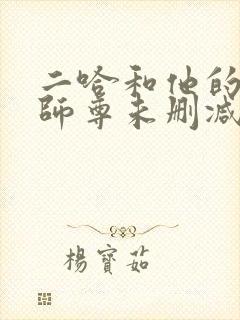 二哈和他的
師尊未刪减
楊寶茹